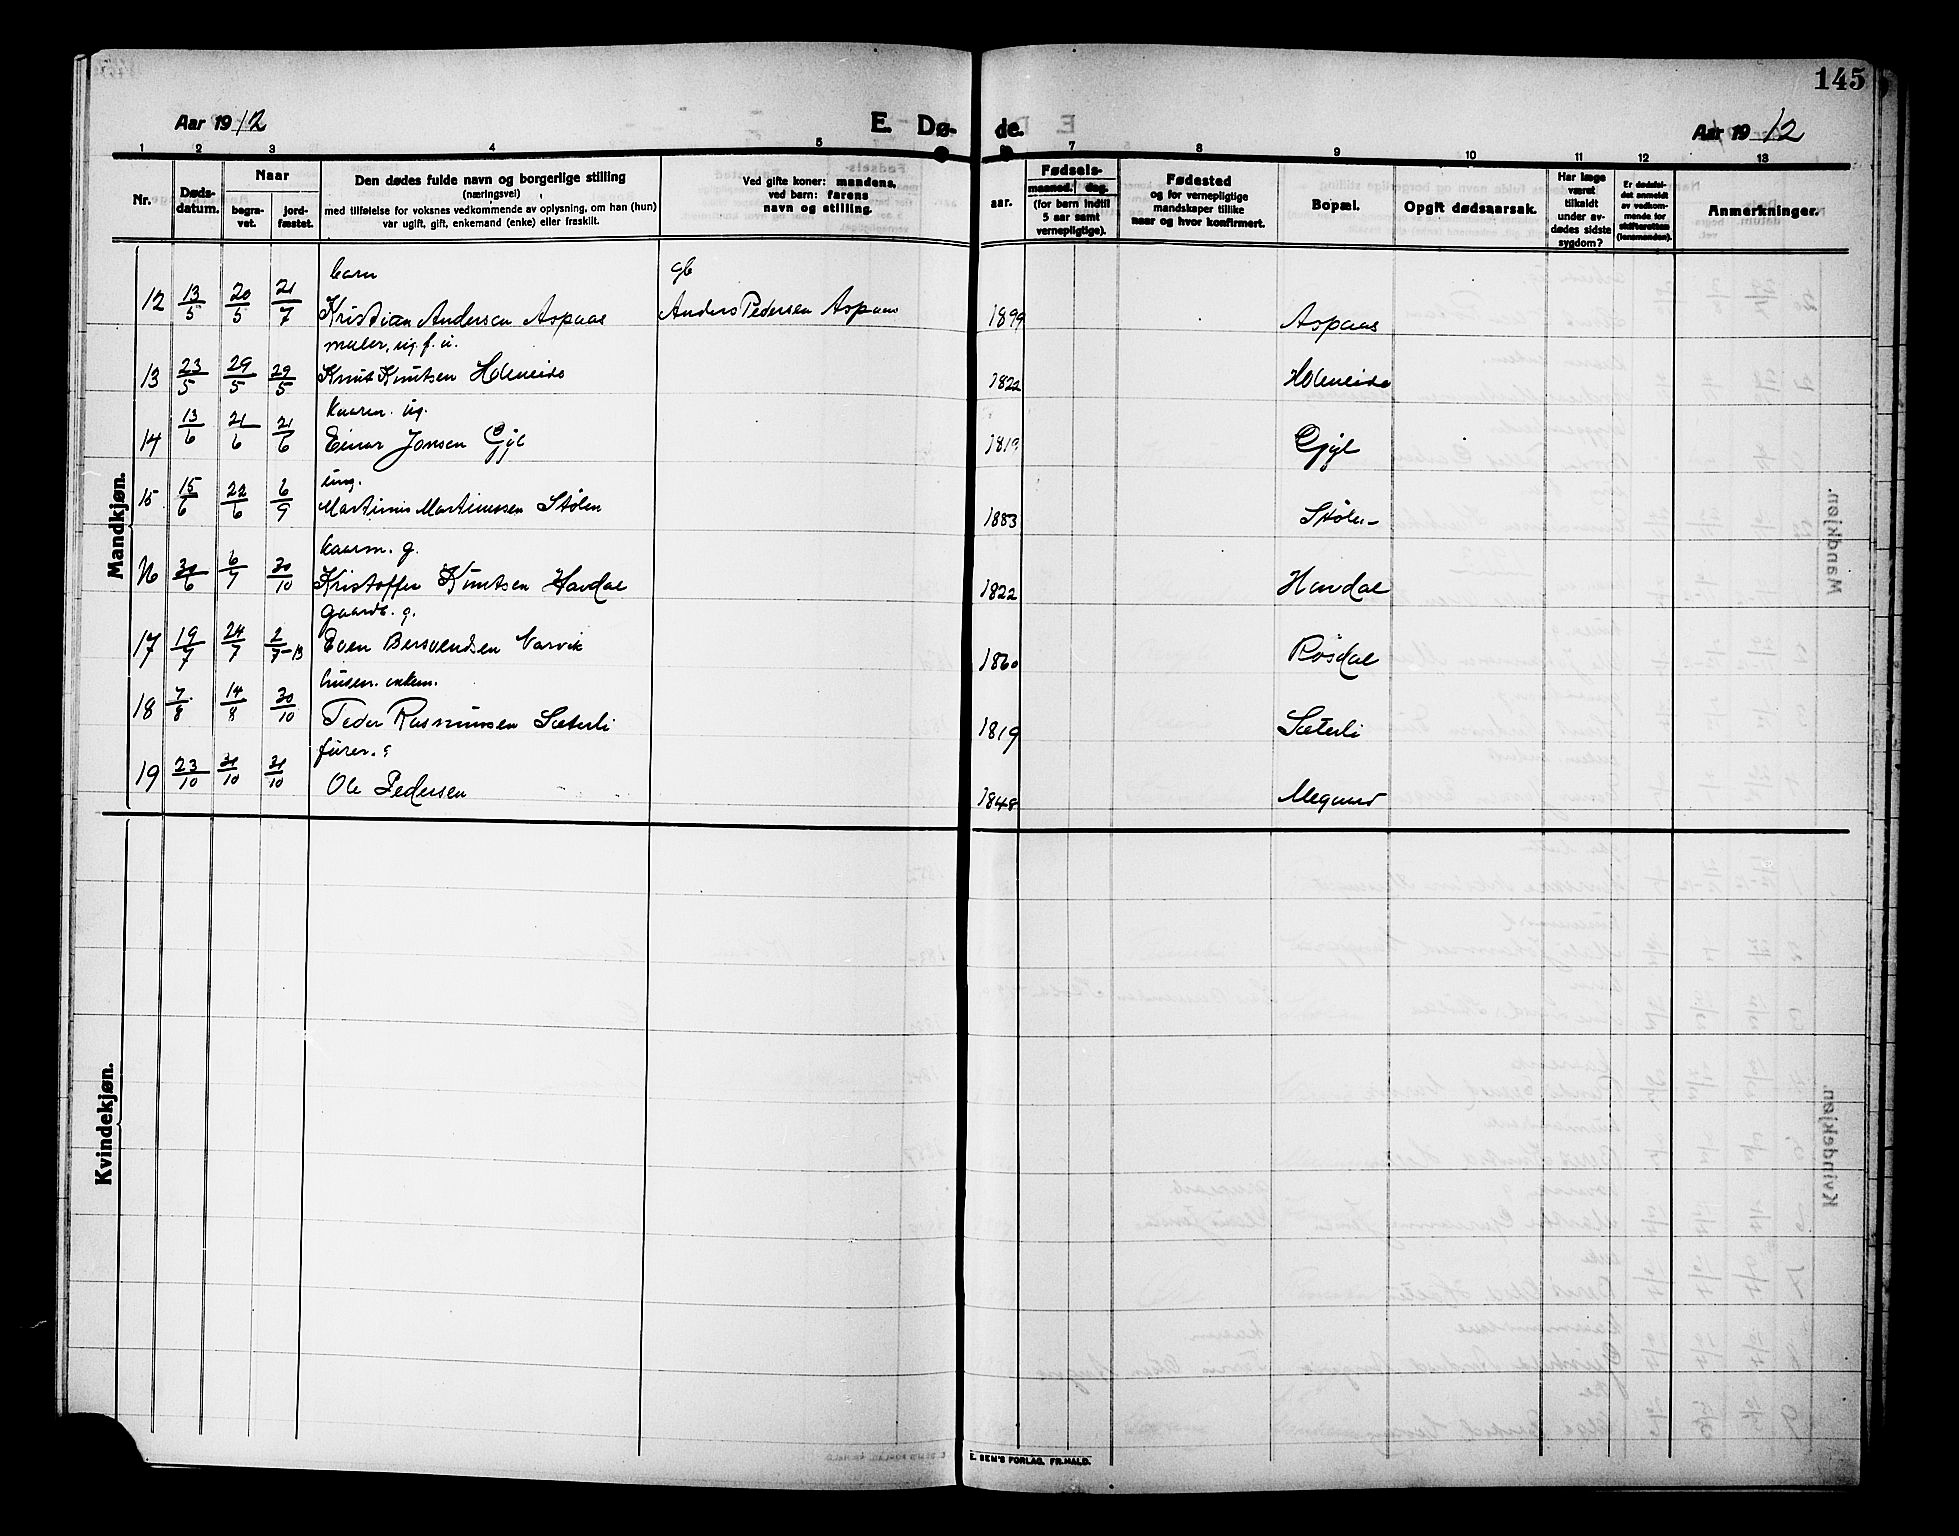 145
Aar 1912
E. Dø-
de.
Aar 1912
1 2 3 4 5 7 8 9 10 11 12 13
Nr.
Døds-
datum.
Naar
begra-
vet.
jord-
fæstet.
Den dødes fulde navn og borgerlige stilling
(næringsvei)
med tilføielse for voksnes vedkommende av oplysning, om han (hun)
var ugift, gift, enkemand (enke) eller fraskilt.
Ved gifte koner: mandens,
ved børn: farens
navn og stilling.
aar.
Fødsels-
maaned. dag.
(for børn indtil
5 aar samt
vernepligtige).
Fødested
og for vernepligtige
mandskaper tillike
naar og hvor konfirmert.
Bopæl.
Opgit dødsaarsak.
Har læge
været
tilkaldt
under av-
dødes sidste
sygdom?
Er dødsfal-
det anmeldt
av vedkom-
mende for
skifteretten
(lensmanden).
Anmerkninger.
Mandkjøn.
barn gb
12 13/5 20/5 21/7 Kristian Andersen Aspaas Anders Pedersen Aspaas 1899 Aspaas
maler, ug. f. u.
13 23/5 29/5 29/5 Knut Knutsen Holmeide 1822 Holmeide
kaarm. ug.
14 13/6 21/6 21/6 Einar Jonsen Gjyl 1819 Gjyl
ung.
15 15/6 22/6 6/9 Martinus Martinussen Stølen 1883 Stølen
kaarm. g.
16 30/6 6/7 30/10 Kristoffer Knutsen Havdal 1822 Havdal
gaardb. g.
17 19/7 24/7 2/7-13 Even Bersvendsen Narvik 1860 Røsdal
husm. enkem.
18 7/8 14/8 30/10 Peder Rasmussen Sæterli 1819 Sæterli
furer. g
19 23/10 31/10 31/10 Ole Pedersen 1848 Megaard
Kvindekjøn.
E. SEM'S FORLAG. FR.HALD.